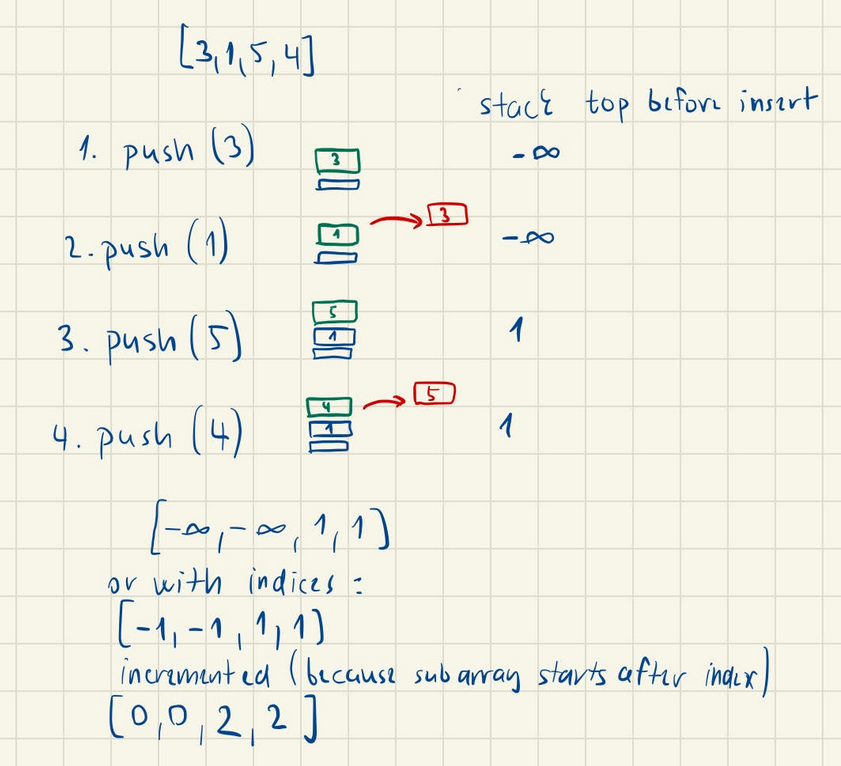 [3,1,5,4]
stack top before insert
1. push (3) 3 -∞
3
2. push (1) 1 -∞
5
3. push (5) 1 1
4 5
4. push (4) 1 1
[-∞, -∞, 1, 1]
or with indices :
[-1, -1, 1, 1]
incremented (because subarray starts after index)
[0, 0, 2, 2]